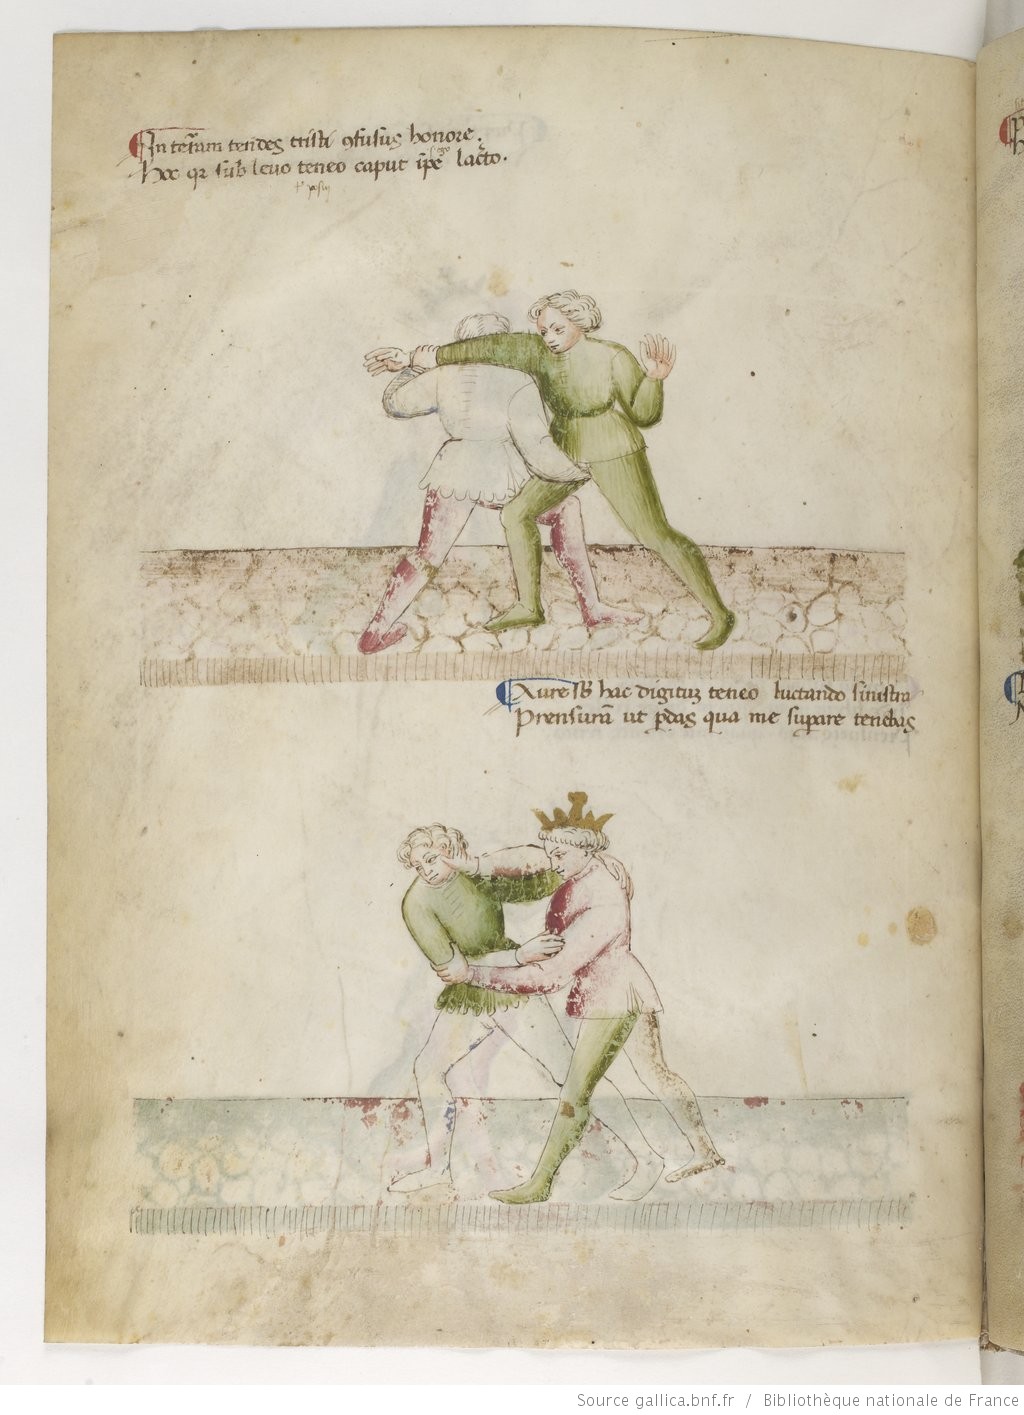 In terram tendes tristi 9fusus honore.
Hoc qr sub levo teneo caput ipse lacto.
ergo
Aure sb hac digitum teneo luctando sinistra
Prensuram ut perdas qua me superare tenebas
Source gallica.bnf.fr / Bibliothèque nationale de France